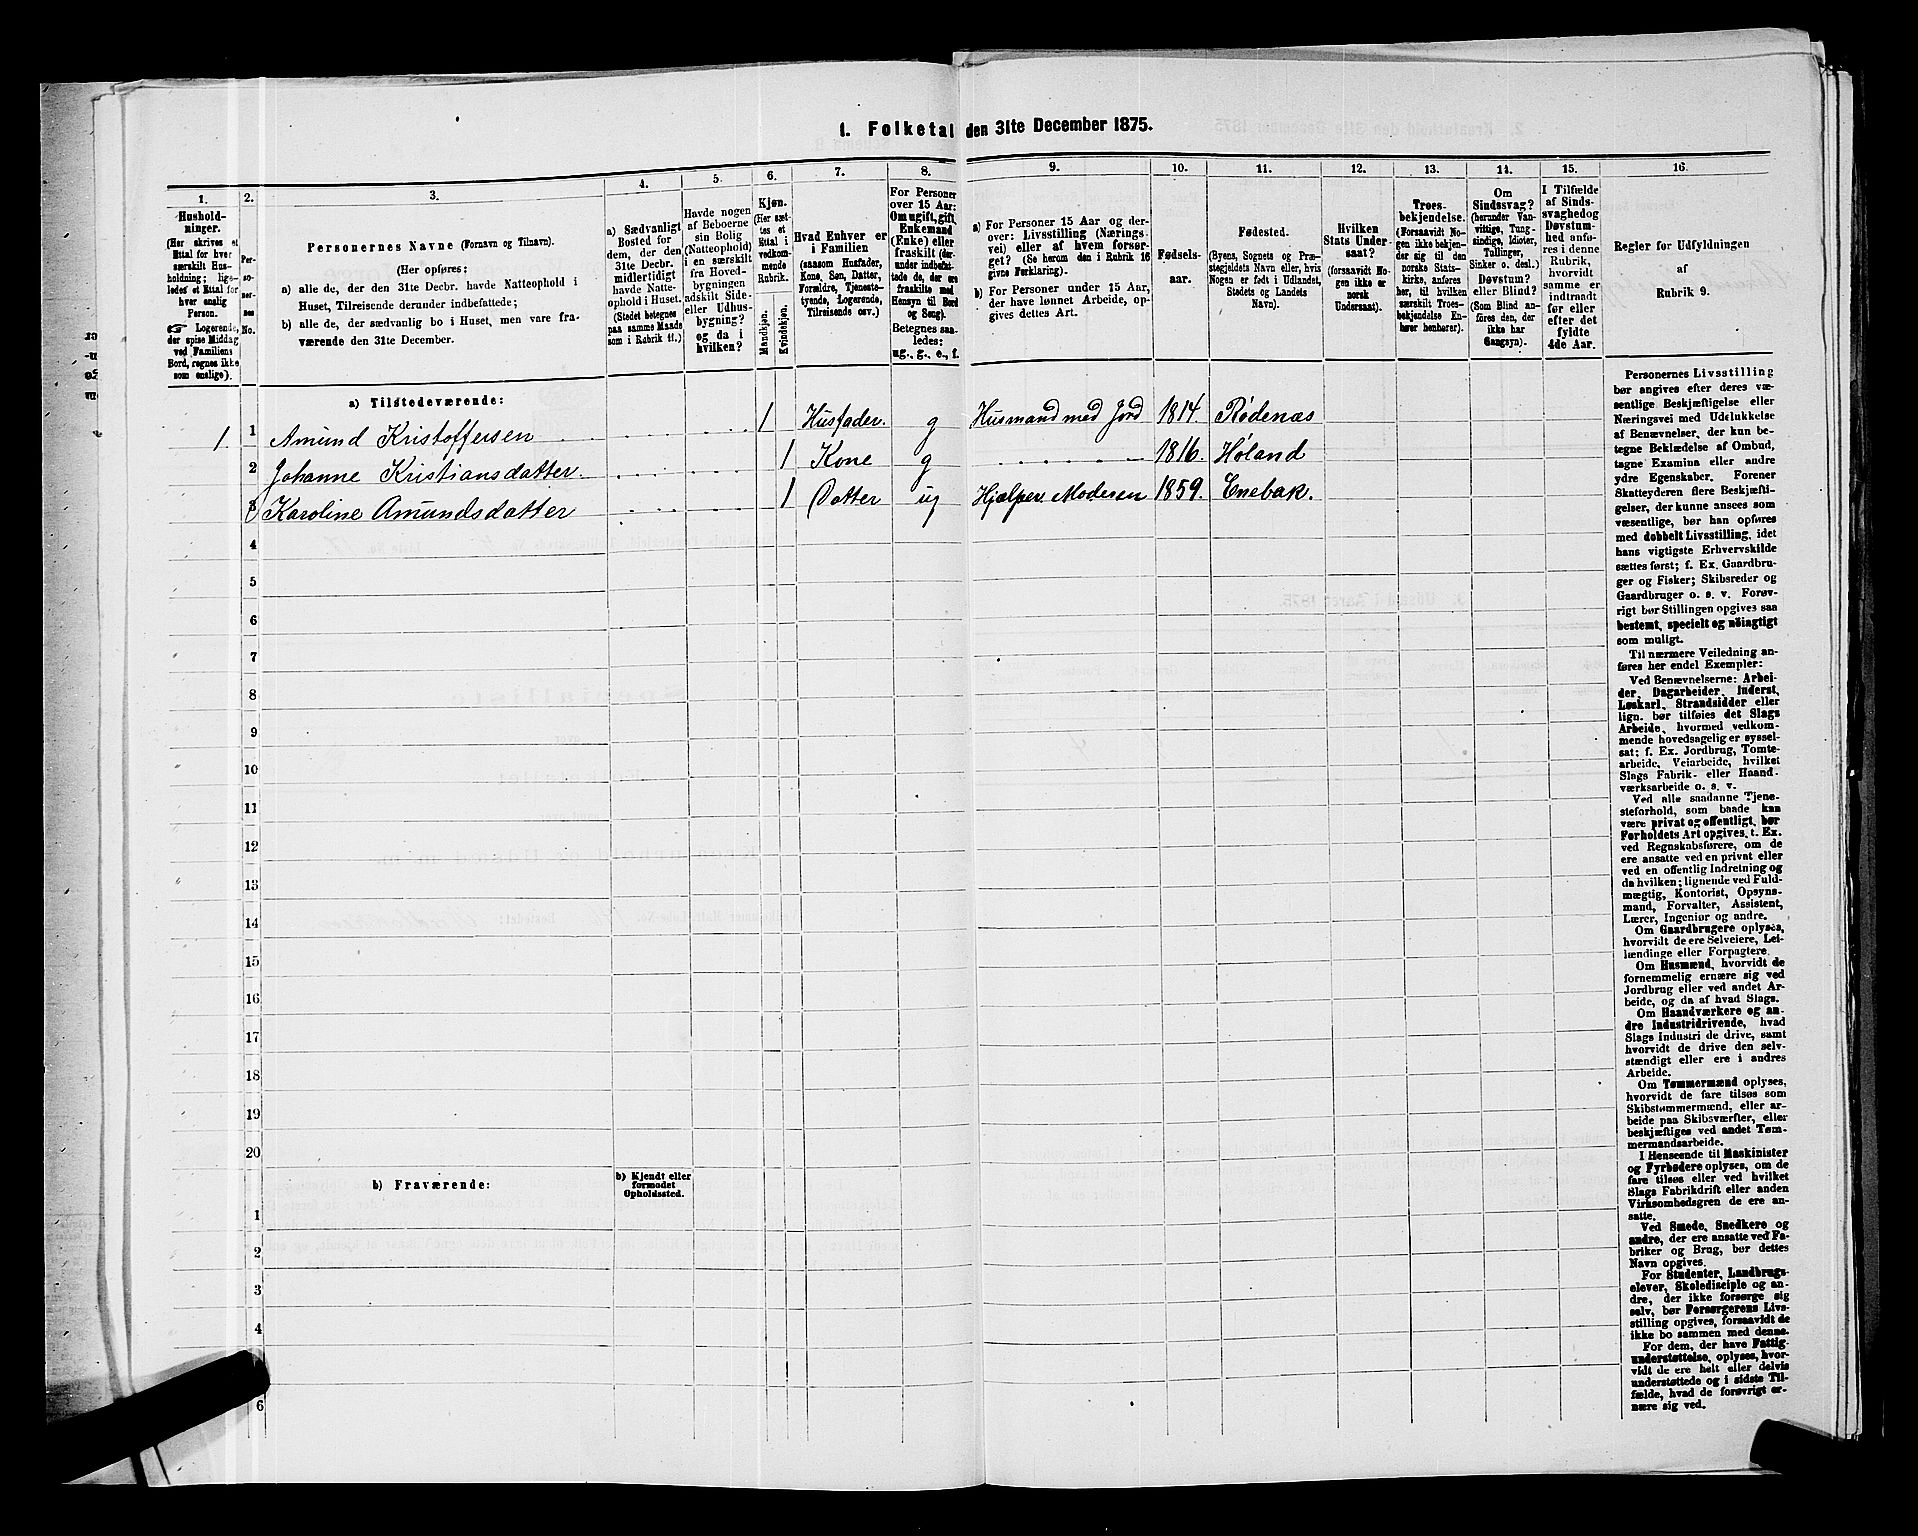 1. Folketal den 31te December 1875.
1.
Hushold-
ninger.
(Her skrives et
Ettal for hver
særskilt Hus-
holdning; lige-
ledes et Ettal for
hver enslig
Person.
☞ Logerende,
der spise Middag
ved Familiens
Bord, regnes ikke
som enslige).
2.
Per-
so-
ner-
nes
No.
3.
Personernes Navne (Fornavn og Tilnavn).
(Her opføres:
a) alle de, der den 31te Decbr. havde Natteophold i
Huset, Tilreisende derunder indbefattede;
b) alle de, der sædvanlig bo i Huset, men vare fra-
værende den 31te December.
4.
a) Sædvanligt
Bosted for
dem, der den
31te Decbr.
midlertidigt
havde Natte-
ophold i Huset.
(Stedet betegnes
paa samme Maade
som i Rubrik 11.)
5.
Havde nogen
af Beboerne
sin Bolig
(Natteophold)
i en særskilt
fra Hoved-
bygningen
adskilt Side-
eller Udhus-
bygning?
og da i
hvilken?
6.
Kjøn.
(Her sæt-
tes et
Ettal i
vedkom-
mende
Rubrik.
Mandkjøn.
Kvindekjøn.
7.
Hvad Enhver er
i Familien
(saasom Husfader,
Kone, Søn, Datter,
Forældre, Tjeneste-
tyende, Logerende,
Tilreisende osv.)
8.
For Personer
over 15 Aar:
Om ugift, gift,
Enkemand
(Enke) eller
fraskilt (der-
under indbefat-
tede de, der ere
fraskilte med
Hensyn til Bord
og Seng).
Betegnes saa-
ledes:
ug., g., e., f.
9.
a) For Personer 15 Aar og der-
over: Livsstilling (Nærings-
vei) eller af hvem forsør-
get? (Se herom den i Rubrik 16
givne Forklaring).
b) For Personer under 15 Aar,
der have lønnet Arbeide, op-
gives dettes Art.
10.
Fødsels-
aar.
11.
Fødested.
(Byens, Sognets og Præ-
stegjeldets Navn eller, hvis
Nogen er født i Udlandet,
Stedets og Landets
Navn).
12.
Hvilken
Stats Under-
saat?
(forsaavidt No-
gen ikke er
norsk
Undersaat).
13.
Troes-
bekjendelse.
(Forsaavidt No-
gen ikke bekjen-
der sig til den
norske Stats-
kirke, anføres
her, til hvilken
særskilt Troes-
bekjendelse En-
hver henhører).
14.
Om
Sindssvag?
(herunder Van-
vittige, Tung-
sindige, Idioter,
Tullinger,
Sinker o. desl.)
Døvstum?
eller Blind?
(Som Blind an-
føres den, der
ikke har
Gangsyn).
15.
I Tilfælde
af Sinds-
svaghed og
Døvstum-
hed anfø-
res i denne
Rubrik,
hvorvidt
samme er
indtraadt
før eller
efter det
fyldte
4de Aar.
16.
Regler for Udfyldningen
af
Rubrik 9.
a) Tilstedeværende:
1 1 Amund Kristoffersen 1 Husfader. g Husmand med Jord 1814. Rødenæs
2 Johanne Kristiansdatter. 1 Kone g 1816. Høland
3 Karoline Amundsdatter 1 Datter ug Hjælper Moderen 1859. Enebak.
4
5
6
7
8
9
10
11
12
13
14
15
16
17
18
19
20
b) Fraværende:
b) Kjendt eller
formodet
Opholdssted.
1
2
3
4
6
Personernes Livsstilling
bør angives efter deres væ-
sentlige Beskjæftigelse eller
Næringsvei med Udelukkelse
af Benævnelser, der kun be-
tegne Beklædelse af Ombud,
tagne Examina eller andre
ydre Egenskaber. Forener
Skatteyderen flere Beskjæfti-
gelser, der kunne ansees som
væsentlige, bør han opføres
med dobbelt Livsstilling, idet
hans vigtigste Erhvervskilde
sættes først; f. Ex. Gaardbru-
ger og Fisker; Skibsreder og
Gaardbruger o. s. v. Forøv-
rigt bør Stillingen opgives saa
bestemt, specielt og nöiagtigt
som muligt.
Til nærmere Veiledning an-
føres her endel Exempler:
Ved Benævnelserne: Arbei-
der, Dagarbeider, Inderst,
Løskarl, Strandsidder eller
lign. bør tilføies det Slags
Arbeide, hvormed vedkom-
mende hovedsagelig er syssel-
sat; f. Ex. Jordbrug, Tomte-
arbeide, Veiarbeide, hvilket
Slags Fabrik- eller Haand-
værksarbeide o. s. v.
Ved alle saadanne Tjene-
steforhold, som baade kan
være privat og offentligt, bør
Forholdets Art opgives, t. Ex.
ved Regnskabsførere, om de
ere ansatte ved en privat eller
ved en offentlig Indretning og
da hvilken; lignende ved Fuld-
mægtig, Kontorist, Opsyns-
mand, Forvalter, Assistent,
Lærer, Ingeniør og andre.
Om Gaardbrugere oplyses,
hvorvidt de ere Selveiere, Lei-
lændinge eller Forpagtere.
Om Husmænd, hvorvidt de
fornemmelig ernære sig ved
Jordbrug eller ved andet Ar-
beide, og da af hvad Slags.
Om Haandværkere og an-
dre Industridrivende, hvad
Slags Industri de drive, samt
hvorvidt de drive den selv-
stændigt eller ere i andres
Arbeide.
Om Tømmermænd oplyses,
hvorvidt de fare tilsøs som
Skibstømmermænd, eller ar-
beide paa Skibsværfter, eller
beskjæftiges ved andet Tøm-
mermandsarbeide.
I Henseende til Maskinister
og Fyrbødere oplyses, om de
fare tilsøs eller ved hvilket
Slags Fabrikdrift eller anden
Virksomhedsgren de ere an-
satte.
Ved Smede, Snedkere og
andre, der ere ansatte ved Fa-
briker og Brug, bør dettes
Navn opgives.
For Studenter, Landbrugs-
elever, Skoledisciple og an-
dre, der ikke forsørge sig
selv, bør Forsørgerens Livs-
stilling opgives, forsaavidt de
ikke bo sammen med denne.
For dem, der have Fattig-
understøttelse, oplyses, hvor-
vidt de ere helt eller delvis
understøttede og i sidste Til-
fælde, hvad de forøvrigt er-
nære sig ved.